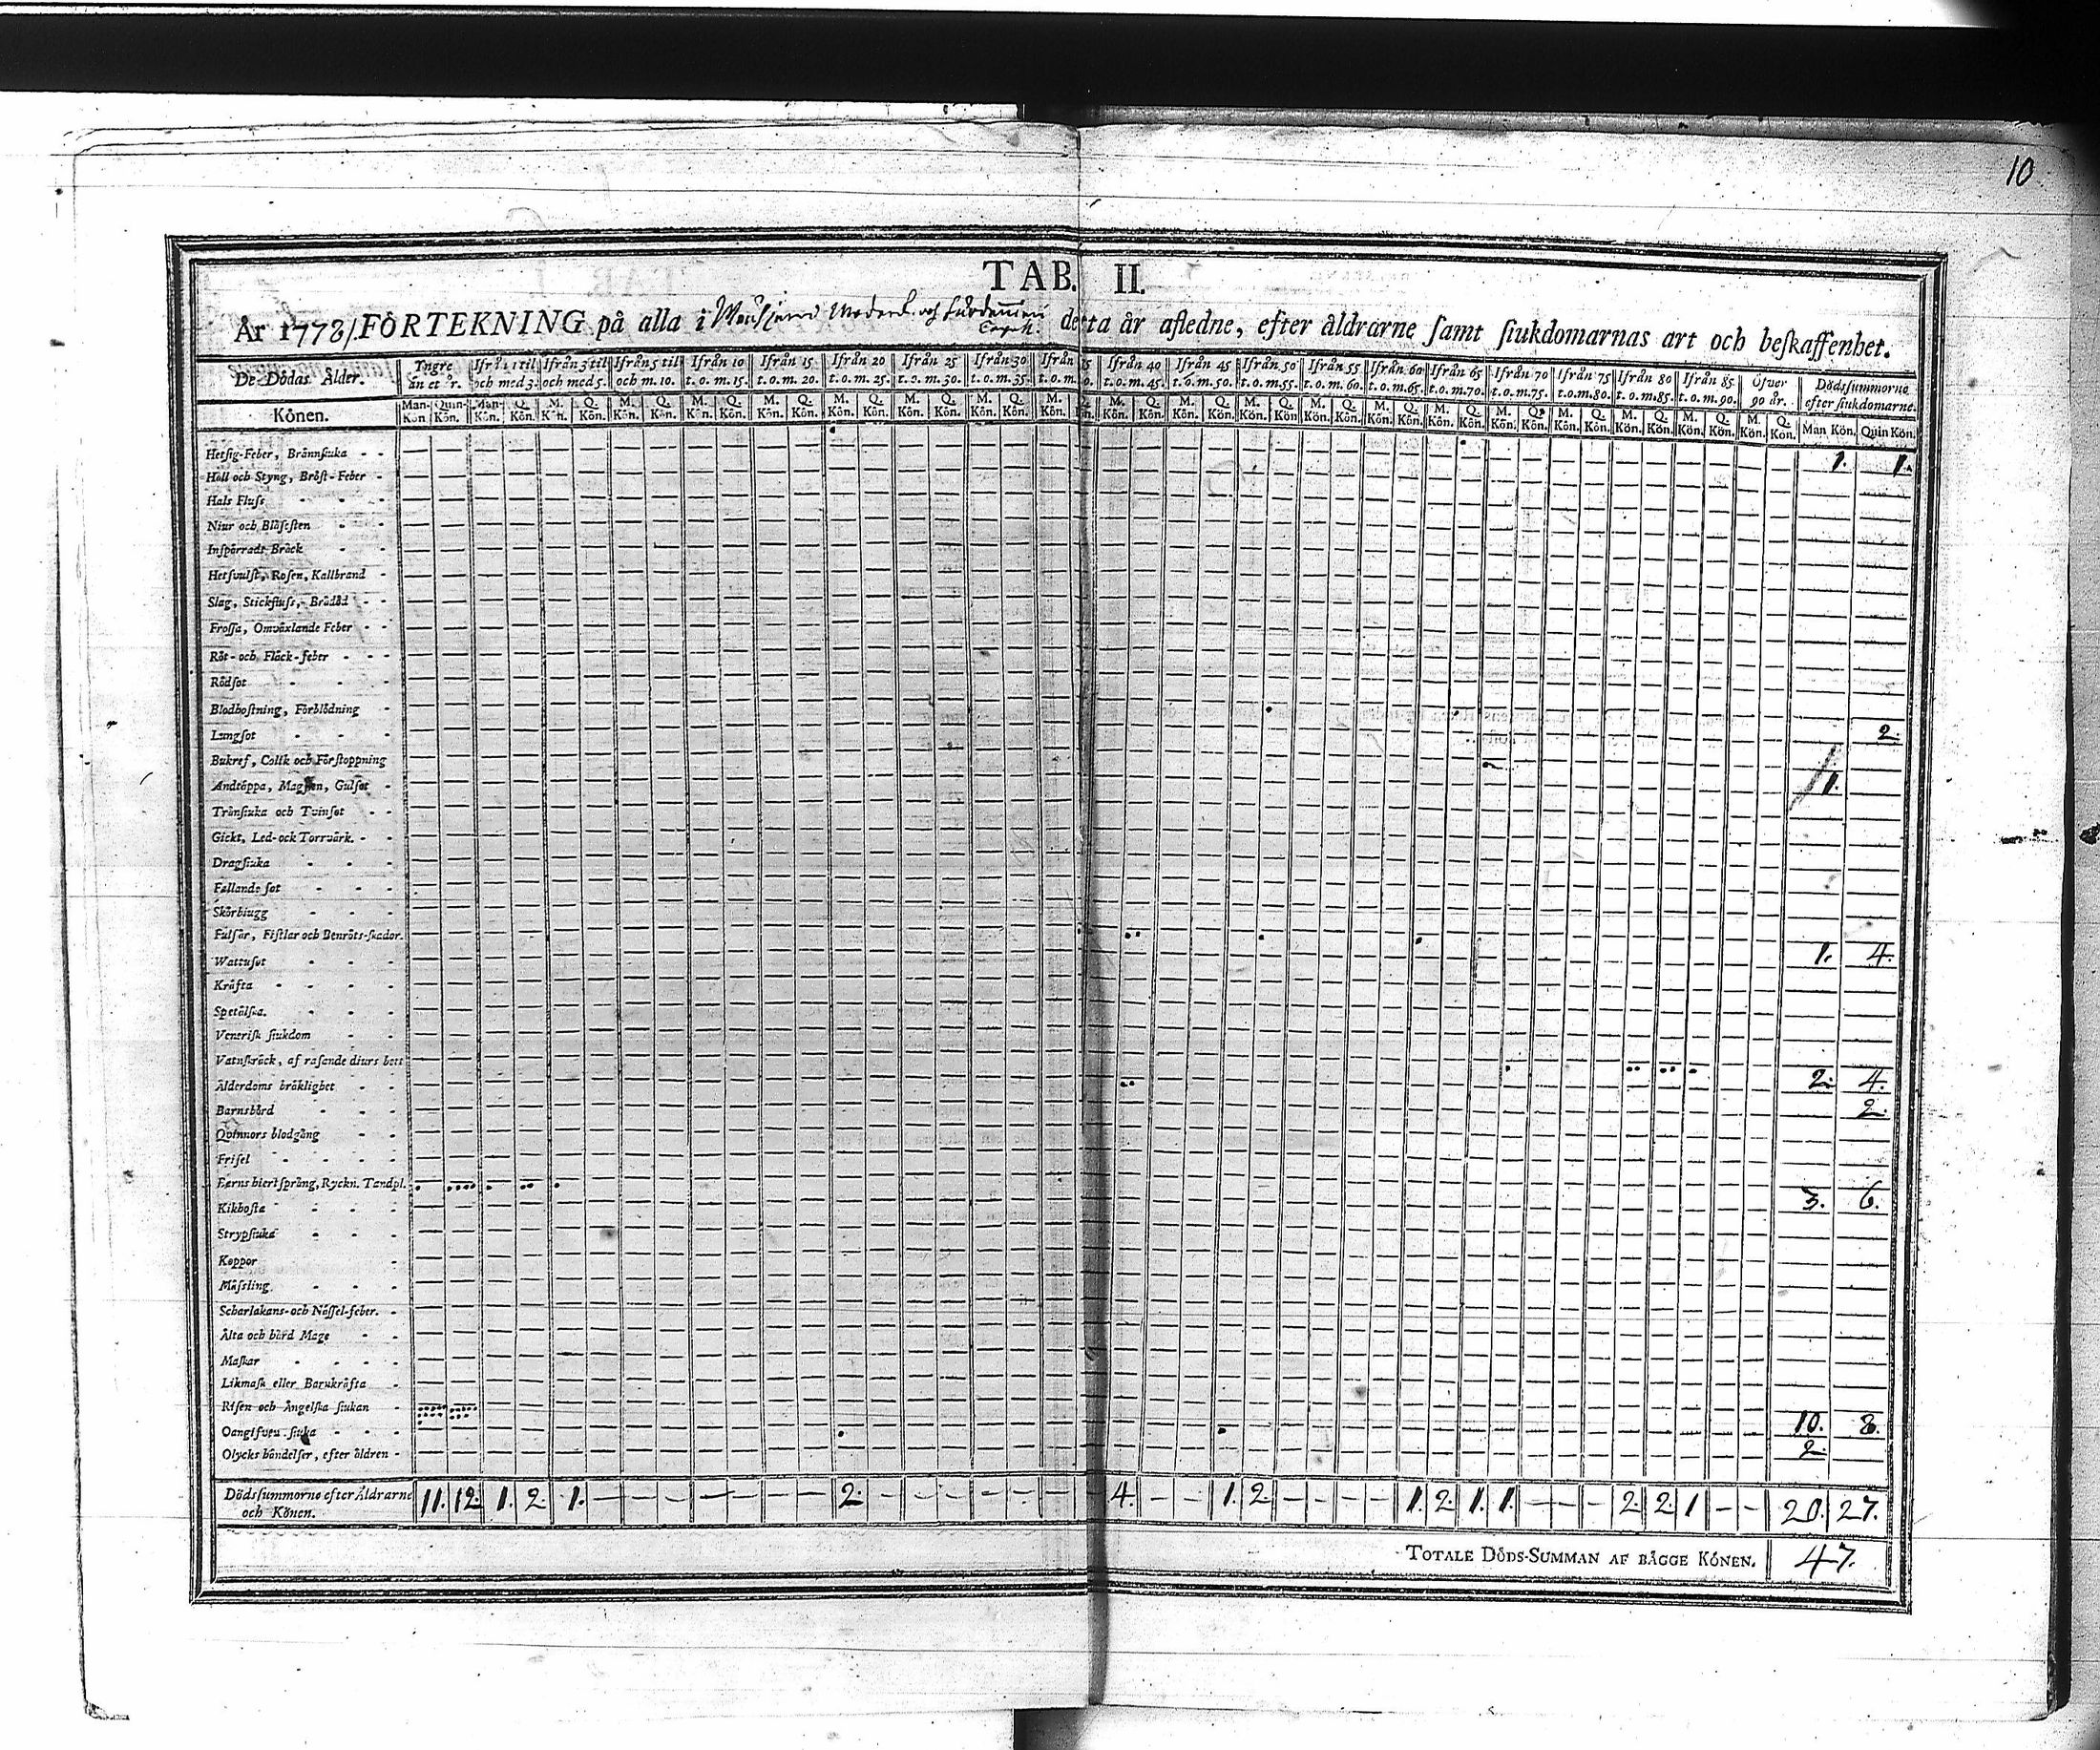 10
TAB. II.
År 1778 / FÖRTEKNING på alla i Moderk. och detta år afledne, efter åldrarne samt siukdomarnas art och beskaffenhet.
De Dödas Ålder. Yngre än et år. Ifrån 1 til och med 3. Ifrån 3 til och med 5. Ifrån 5 til och m. 10. Ifrån 10 t. o. m. 15. Ifrån 15 t. o. m. 20. Ifrån 20 t. o. m. 25. Ifrån 25 t. o. m. 30. Ifrån 30 t. o. m. 35. Ifrån 35 t. o. m. Ifrån 40 t. o. m. 45. Ifrån 45 t. o. m. 50. Ifrån 50 t. o. m. 55. Ifrån 55 t. o. m. 60. Ifrån 60 t. o. m. 65. Ifrån 65 t. o. m. 70. Ifrån 70 t. o. m. 75. Ifrån 75 t. o. m. 80. Ifrån 80 t. o. m. 85. Ifrån 85 t. o. m. 90. Öfver 90 år. Dödssummorne efter siukdomarne.
Könen. Man-Kön Quin-Kön. Man-Kön. Q. Kön. M. Kön. Q. Kön. M. Kön. Q. Kön. M. Kön. Q. Kön. M. Kön. Q. Kön. M. Kön. Q. Kön. M. Kön. Q. Kön. M. Kön. Q. Kön. M. Kön. M. Kön. Q. Kön. M. Kön. Q. Kön. M. Kön. Q. Kön. M. Kön. Q. Kön. M. Kön. Q. Kön. M. Kön. Q. Kön. M. Kön. Q. Kön. M. Kön. Q. Kön. M. Kön. Q. Kön. M. Kön. Q. Kön. M. Kön. Q. Kön. Man Kön. Quin Kön.
Hetsig-Feber, Brännsiuka - - 1. 1.
Håll och Styng, Bröst-Feber -
Hals Fluss - - -
Niur och Blåsesten - -
Inspärradt Bråck - -
Hetsvulst, Rosen, Kallbrand -
Slag, Stickfluss, Brådöd - -
Frossa, Omväxlande Feber - -
Röt- och Fläck-feber - - -
Rödsot - - -
Blodhostning, Förblödning -
Lungsot - - - 2.
Bukref, Colik och Förstoppning
Andtäppa, Magpin, Gulsot - 1.
Trånsiuka och Tvinsot - -
Gickt, Led- ock Torrvärk. - -
Dragsiuka - - -
Fallande sot - - -
Skörbiugg - - -
Fulsår, Fistlar och Benröts-skador.
Wattusot - - - 1. 4.
Kräfta - - - -
Spetälska. - - -
Venerisk siukdom - -
Vatnskräck, af rasande diurs bett
Ålderdoms bräklighet - - 2. 4.
Barnsbörd - - - 2.
Qvinnors blodgång - -
Frisel - - - -
Barns hiertsprång, Ryckn. Tandpl. 3. 6.
Kikhosta - - -
Strypsiuka - - -
Koppor -
Mässling. - - -
Scharlakans- och Nässel-feber. -
Älta och hård Mage - -
Maskar - - - -
Likmask eller Barnkräfta -
Risen och Ängelska siukan -
Oangifven siuka - - - 10. 8.
Olycks händelser, efter åldren - 2.
Dödssummorne efter Åldrarne och Könen. 11. 12. 1. 2. 1. — — — — — — — 2. — — — — — — 4. — — 1. 2. — — — — 1. 2. 1. 1. — — — 2. 2. 1 — — 20. 27.
TOTALE DÖDS-SUMMAN AF BÄGGE KÖNEN. 47.